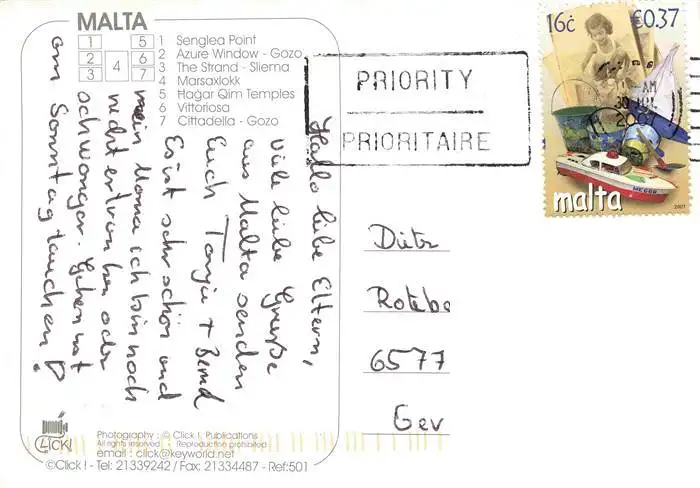 MALTA
1 Senglea Point
2 Azure Window - Gozo
3 The Strand - Sliema
4 Marsaxlokk
5 Ħaġar Qim Temples
6 Vittoriosa
7 Cittadella - Gozo
1 5
2 4 6
3 7
PRIORITY
PRIORITAIRE
16c €0.37
AM
30
2007
MEGGR
malta
2007
Hallo liebe Eltern,
Viele liebe Grüße
aus Malta senden
Euch Tanja + Bernd
Es ist sehr schön und
nein Mama ich bin noch
nicht ertrunken oder
schwanger. Gehen erst
am Sonntag tauchen!
Dietz
Roteb
6577
Gev
CLICK!
Photography : © Click !. Publications
All rights reserved Reproduction prohibited
email : click@keyworld.net
©Click ! - Tel: 21339242 / Fax: 21334487 - Ref:501